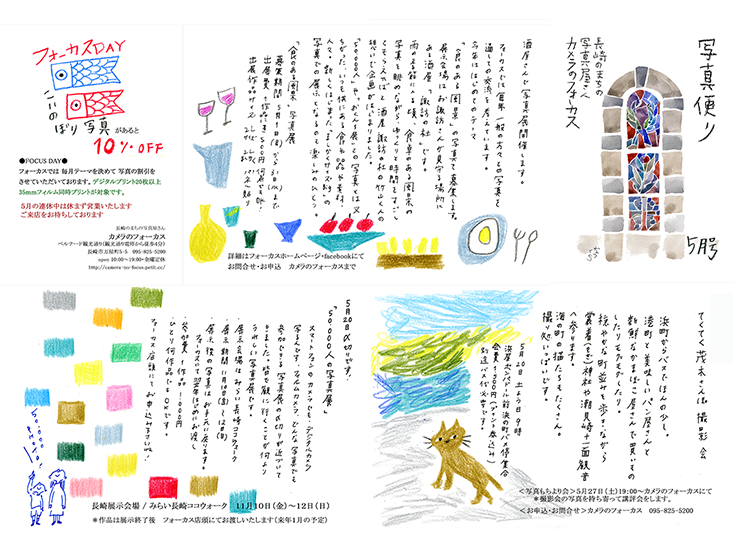 写真便り
長崎のまちの
写真屋さん
カメラのフォーカス
5月号
酒屋さんで写真展開催します。
フォーカスでは毎年一般の方々との写真を
通しての交流を
今年ははじめてのテーマ
「食のある風景」の写真を募集します。
展示会場はお諏訪さんの見守る場所に
ある酒屋「諏訪の杜」です。
雨の
写真を眺めながら、ゆっくりと時間をすごし
「50,000人」や「おくんち展」との写真とは又
写真での展示となるのでとても楽しみのひとつ。
「食のある風景」写真展
募集期間 5月1日(月)から31日(水)まで
出展費 1作品 ¥500
出展作品サイズ
詳細はフォーカスホームページ・facebookにて
お問合せ・お申込 カメラのフォーカスまで
フォーカスDAY
こいのぼり写真があると
10% OFF
●FOCUS DAY●
フォーカスでは 毎月テーマを決めて 写真の割引を
させていただいております。デジタルプリント20枚以上
35mmフィルム同時プリントが対象です。
5月の連休中は休まず営業いたします
ご来店をお待ちしております
長崎のまちの写真屋さん
カメラのフォーカス
ベルナード観光通り(観光通り電停から徒歩4分)
長崎市万屋町5-5 095-825-5200
open 10:00～19:00・金曜定休
http://camera-no-focus.petit.cc/
てくてく茂木さんぽ撮影会
浜町からバスでほんの少し。
港町を美味しいパン屋さんと
新鮮なかまぼこ屋さんで買いもの
したりしてたのしむ
穏やかな町並を歩きながら
裳着(もぎ)神社や潮見崎十一面観音
へ参ります。
海の町の猫たちもたくさん。
撮り処いっぱいです。
5月20日 土よう日 9時
会費 1500円(プリント巻込み)
別途バス代必要です。
<写真もちより会>5月27日(土)19:00～カメラのフォーカスにて
*撮影会の写真を持ち寄って講評会をします。
<お申込・お問合せ>カメラのフォーカス 095-825-5200
5月20日〆切りです。
「50,000人の写真展」
スマートフォンのカメラでも、デジタルカメラ
写るんです、フィルムカメラ、どんな写真でも
参加できる写真展の〆切りが近づいて
きました。皆で観に行くことが何より
うれしい写真展です。
・展示会場はみらい長崎ココウォーク
・展示期間 11月10日(金)～12日(日)
・展示後の写真はお手元に戻ります。
・参加費 1作品 1000円
ひとり何作品でもOKです。
フォーカス店頭にてお申込み下さいね!
50,000 photo!
長崎展示会場 / みらい長崎ココウォーク 11月10日(金)～12日(日)
*作品は展示終了後 フォーカス店頭にてお渡しいたします(来年1月の予定)